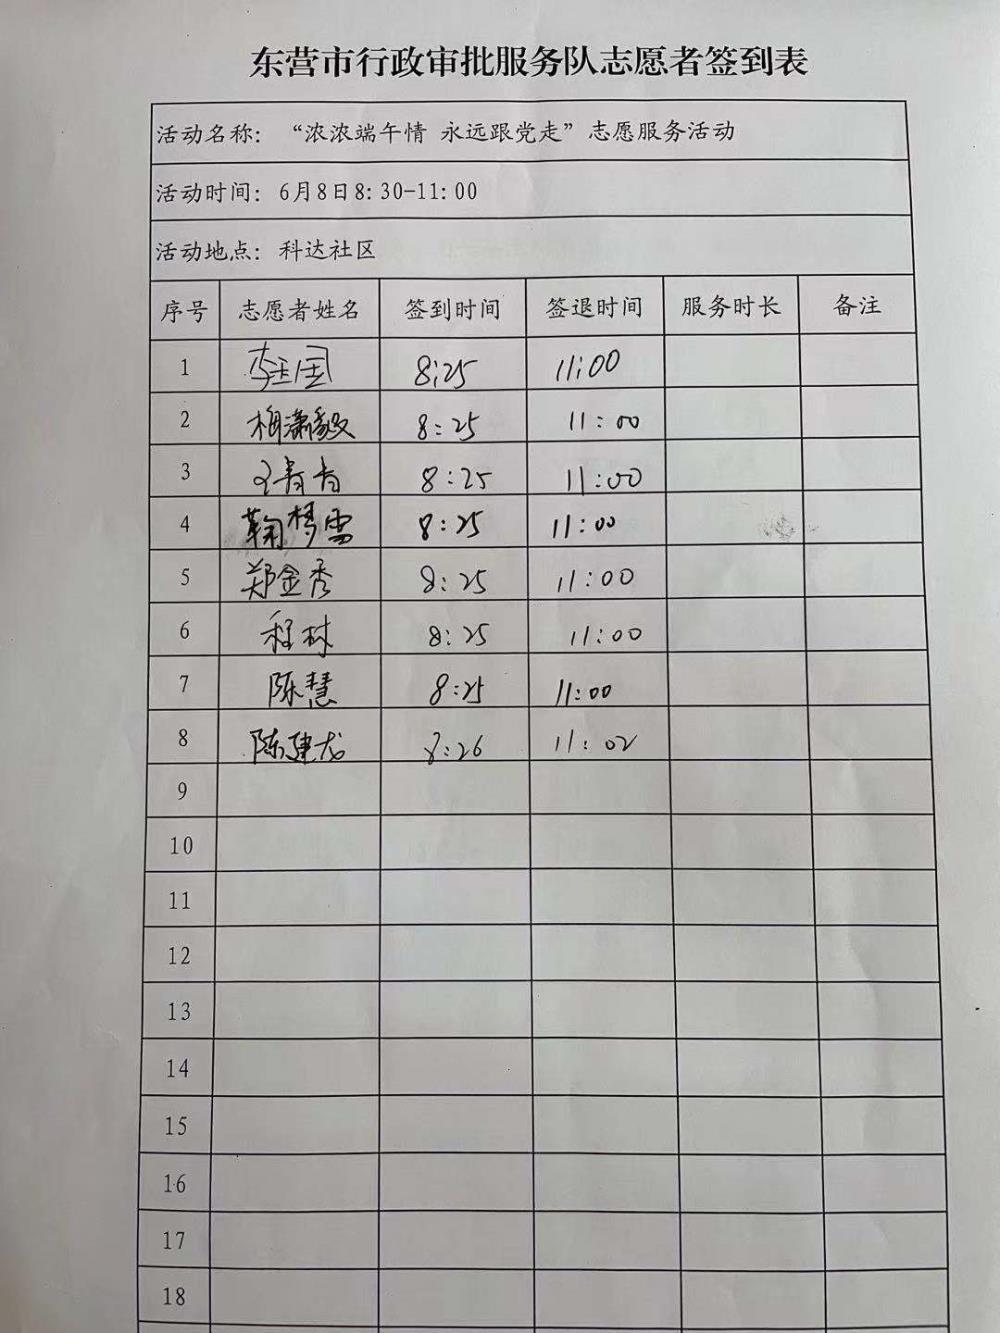 东营市行政审批服务队志愿者签到表
活动名称: “浓浓端午情 永远跟党走”志愿服务活动
活动时间: 6月8日8:30-11:00
活动地点: 科达社区
序号 志愿者姓名 签到时间 签退时间 服务时长 备注
1 李国 8:25 11:00
2 梅潇毅 8:25 11:00
3 王青青 8:25 11:00
4 鞠梦雪 8:25 11:00
5 郑金秀 8:25 11:00
6 程林 8:25 11:00
7 陈慧 8:25 11:00
8 陈建龙 8:26 11:02
9
10
11
12
13
14
15
16
17
18